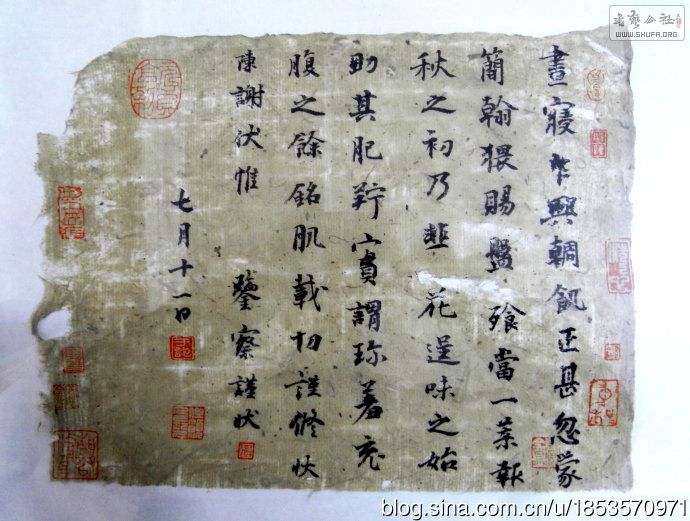 晝寢乍興輖飢正甚忽蒙
簡翰猥賜盤飧當一葉報
秋之初乃韭花逞味之始
助其肥羜實謂珍羞充
腹之餘銘肌載切謹修狀
陳謝伏惟 鑒察謹狀
七月十一日
書藝公社
WWW.SHUFA.ORG
blog.sina.com.cn/u/1853570971